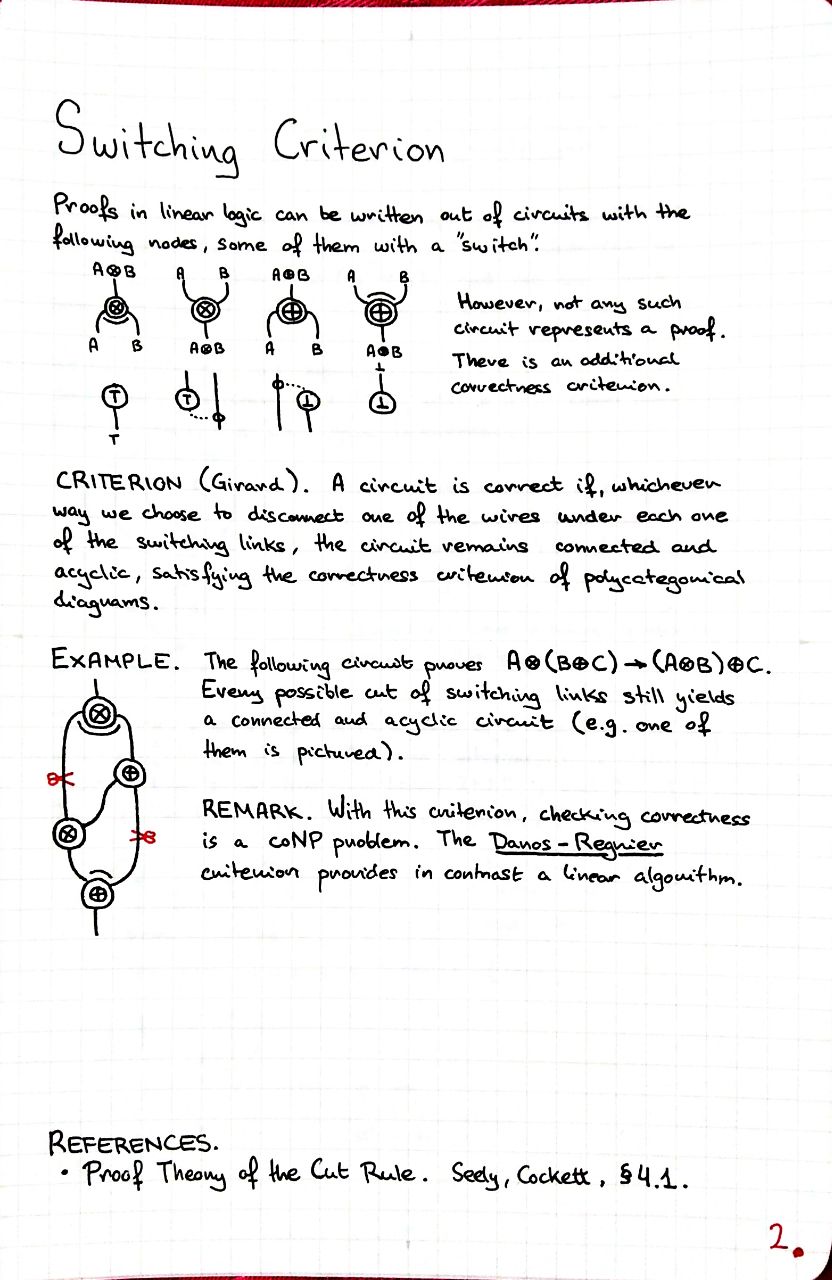 Switching Criterion
Proofs in linear logic can be written out of circuits with the
following nodes, some of them with a "switch".
A⊗B A B A⊕B A B
⊗ ⊗ ⊕ ⊕
A B A⊗B A B A⊕B
However, not any such
circuit represents a proof.
There is an additional
correctness criterion.
⊥
⊤ ⊤ ⊥ ⊥
⊤
CRITERION (Girard). A circuit is correct if, whichever
way we choose to disconnect one of the wires under each one
of the switching links, the circuit remains connected and
acyclic, satisfying the correctness criterion of polycategorical
diagrams.
EXAMPLE. The following circuit proves A⊗(B⊕C)→(A⊗B)⊕C.
Every possible cut of switching links still yields
a connected and acyclic circuit (e.g. one of
them is pictured).
⊗
⊕
⊗
⊕
REMARK. With this criterion, checking correctness
is a coNP problem. The Danos-Regnier
criterion provides in contrast a linear algorithm.
REFERENCES.
• Proof Theory of the Cut Rule. Seely, Cockett, §4.1.
2.